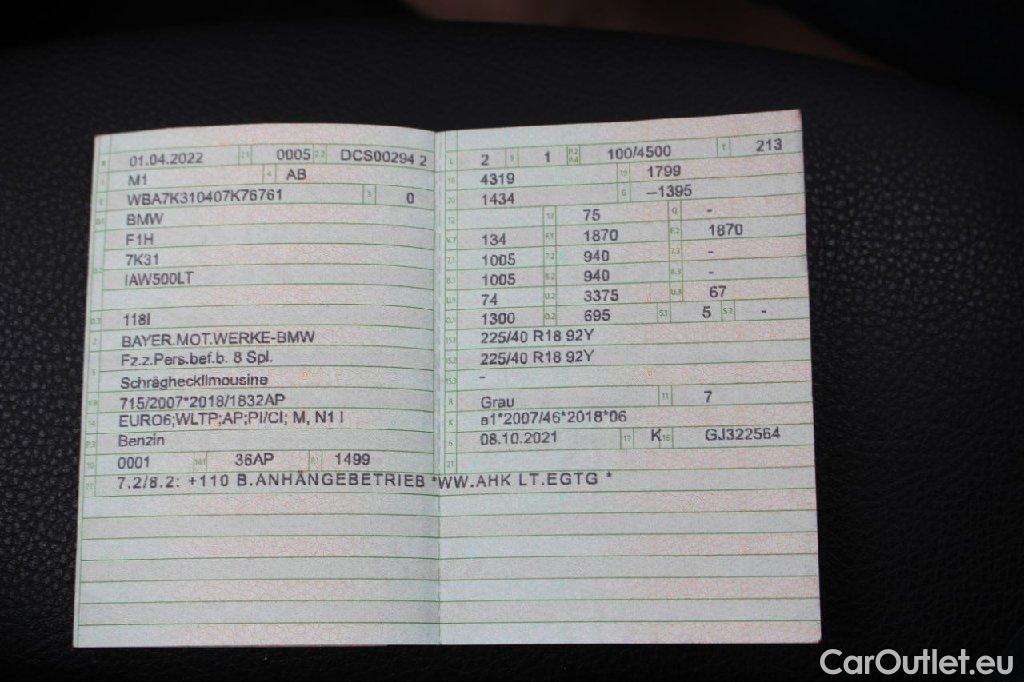 B 01.04.2022 2.1 0005 2.2 DCS00294 2
J M1 4 AB
E WBA7K310407K76761 3 0
D.1 BMW
F1H
D.2 7K31
IAW500LT
D.3 118I
2 BAYER.MOT.WERKE-BMW
5 Fz.z.Pers.bef.b. 8 Spl.
Schräghecklimousine
V.9 715/2007*2018/1832AP
14 EURO6;WLTP;AP;PI/CI; M, N1 I
P.3 Benzin
10 0001 14.1 36AP P.1 1499
22 7.2/8.2: +110 B.ANHÄNGEBETRIEB *WW.AHK LT.EGTG *
L 2 9 1 P.2 P.4 100/4500 T 213
18 4319 19 1799
20 1434 G —1395
12 13 75 Q -
V.7 134 F.1 1870 F.2 1870
7.1 1005 7.2 940 7.3 -
8.1 1005 8.2 940 8.3 -
U.1 74 U.2 3375 U.3 67
O.1 1300 O.2 695 S.1 5 S.2 -
15.1 225/40 R18 92Y
15.2 225/40 R18 92Y
15.3 -
R Grau 11 7
K e1*2007/46*2018*06
6 08.10.2021 17 K 16 GJ322564
21
CarOutlet.eu